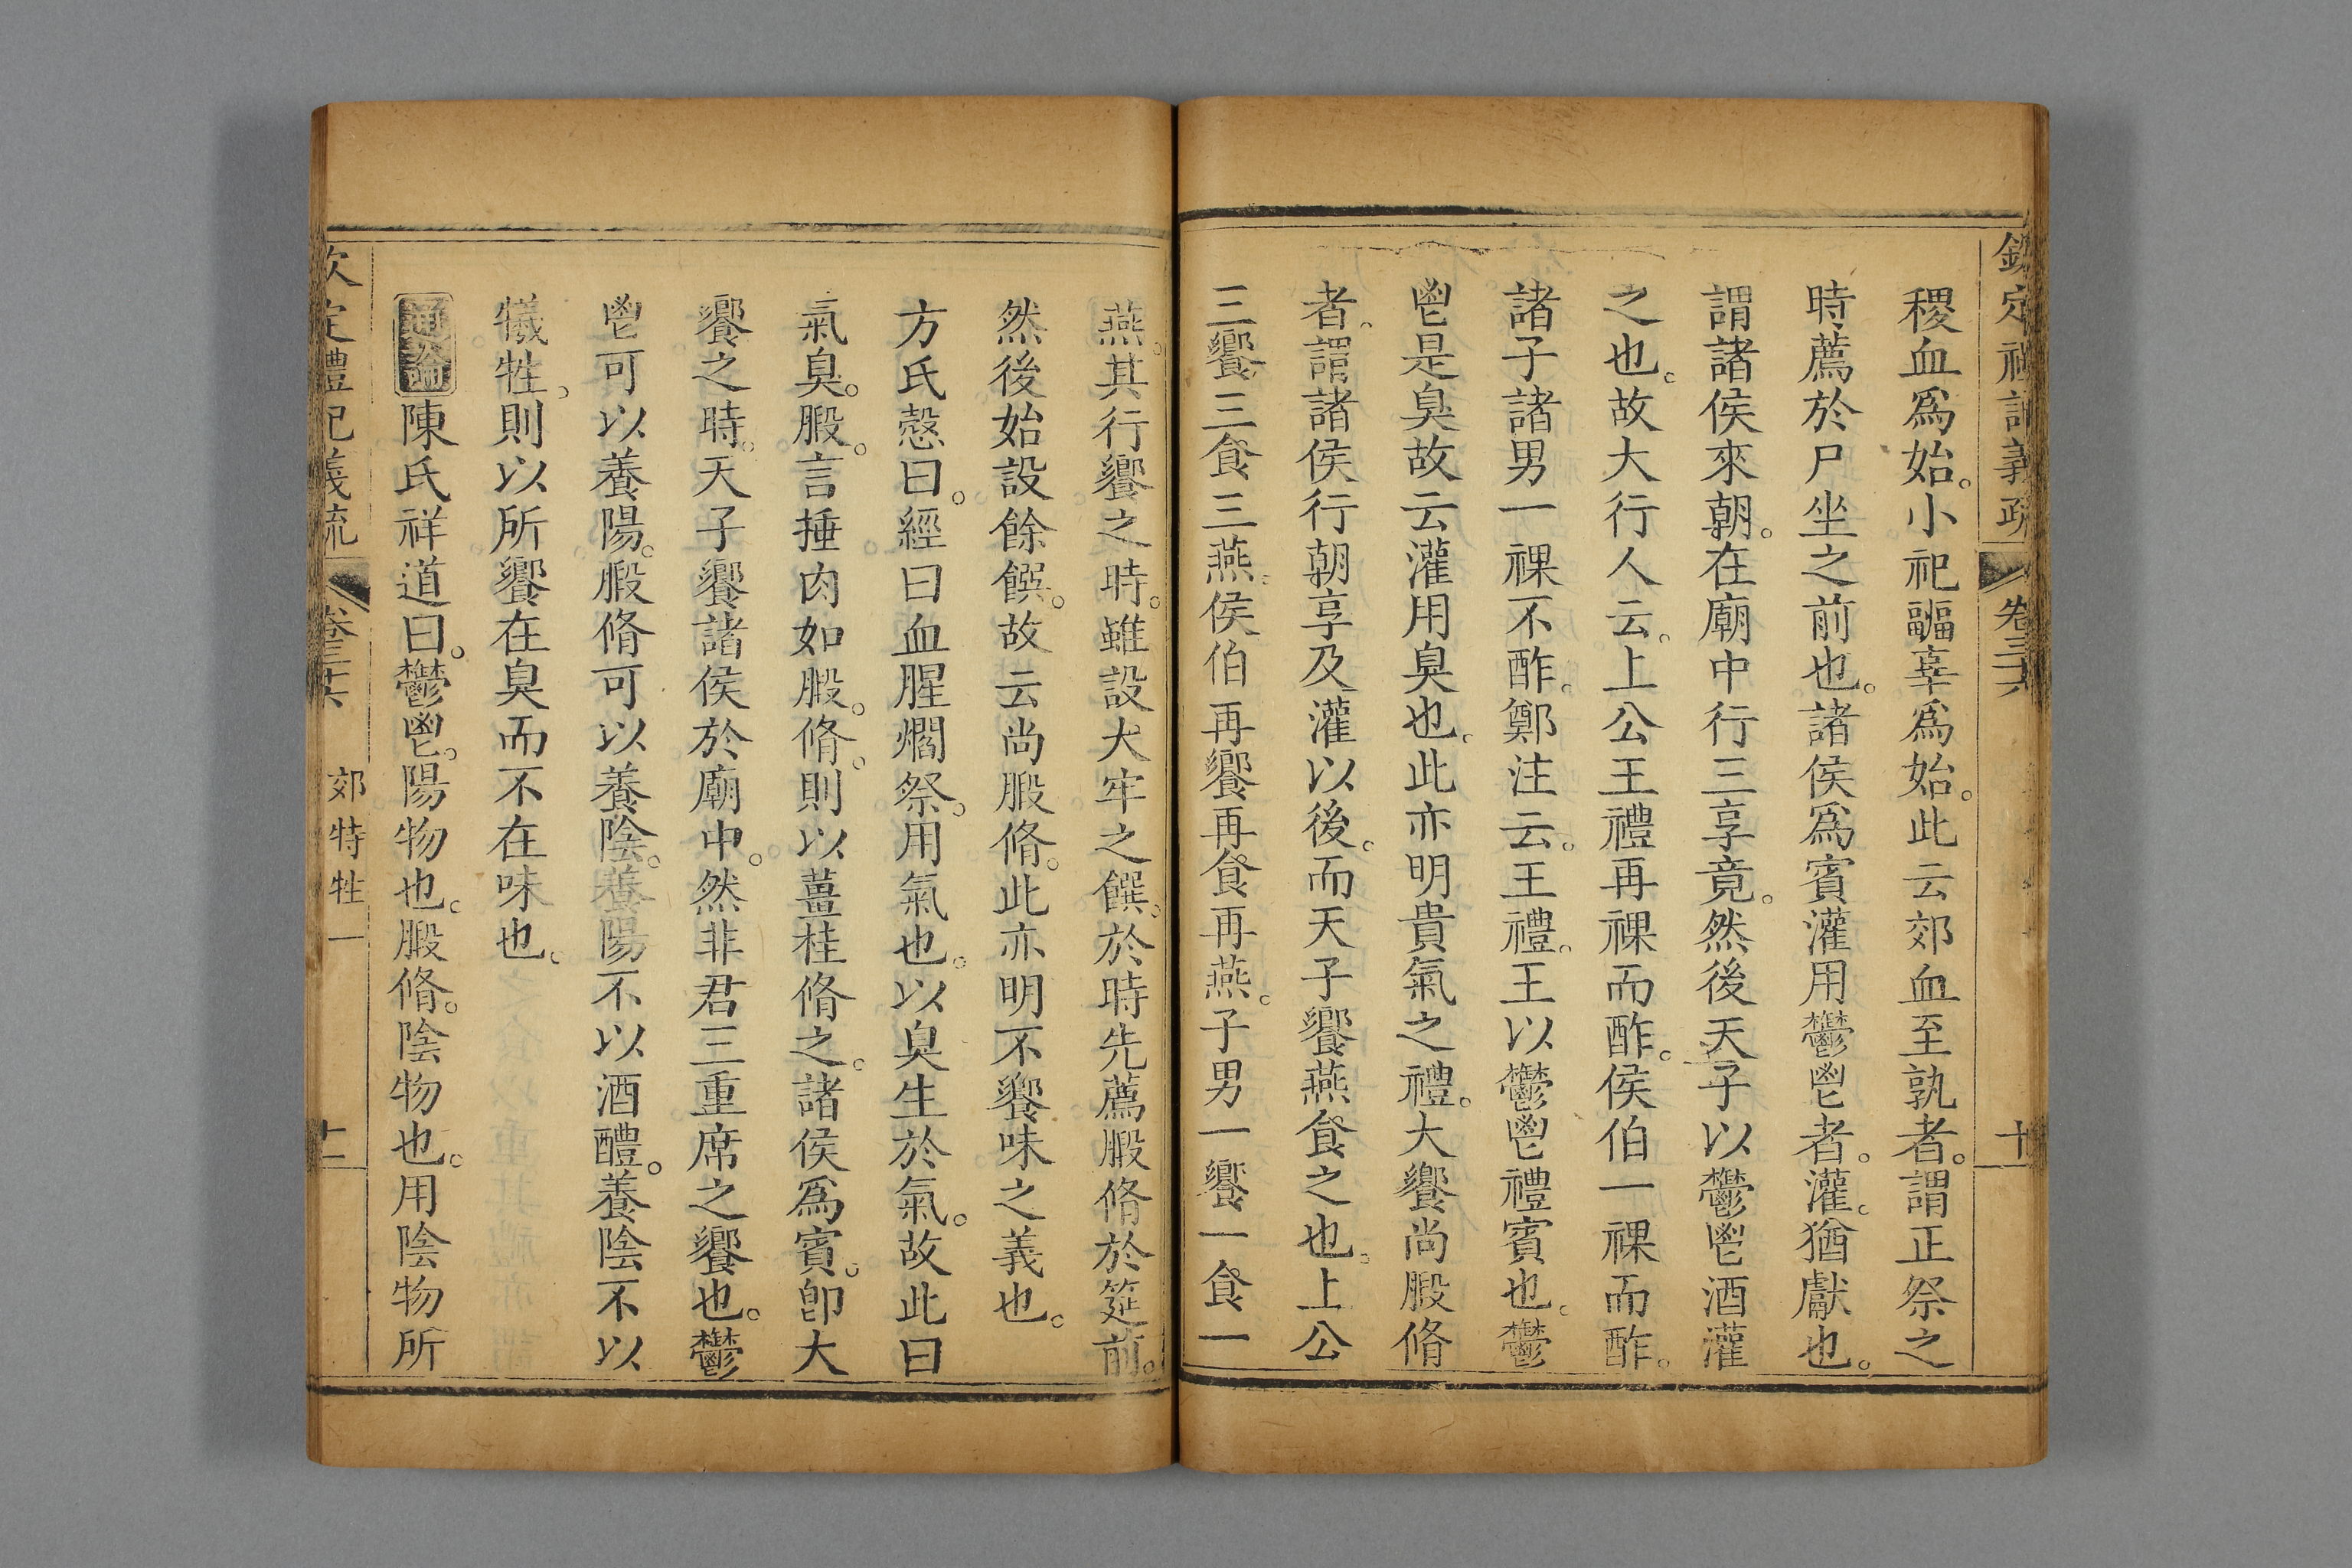 欽定禮記義疏 卷三六 十
稷血爲始。小祀疈辜爲始。此云郊血至孰者。謂正祭之
時薦於尸坐之前也。諸侯爲賓灌用鬱鬯者。灌。猶獻也。
謂諸侯來朝。在廟中行三享竟。然後天子以鬱鬯酒灌
之也。故大行人云。上公王禮再祼而酢。侯伯一祼而酢。
諸子諸男一祼不酢。鄭注云。王禮。王以鬱鬯禮賓也。鬱
鬯是臭故云灌用臭也。此亦明貴氣之禮。大饗尚腶脩
者。謂諸侯行朝享及灌以後。而天子饗燕食之也。上公
三饗三食三燕。侯伯再饗再食再燕。子男一饗一食一
燕。其行饗之時。雖設大牢之饌。於時先薦腶脩於筵前。
然後始設餘饌。故云尚腶脩。此亦明不饗味之義也。
方氏慤曰。經曰血腥爓祭。用氣也。以臭生於氣。故此曰
氣臭。腶。言捶肉如腶。脩。則以薑桂脩之。諸侯爲賓。卽大
饗之時。天子饗諸侯於廟中。然非君三重席之饗也。鬱
鬯可以養陽。腶脩可以養陰。養陽不以酒醴。養陰不以
犧牲。則以所饗在臭而不在味也。
通論陳氏祥道曰。鬱鬯。陽物也。腶脩。陰物也。用陰物所
欽定禮記義疏 卷三十六 郊特牲一 十一